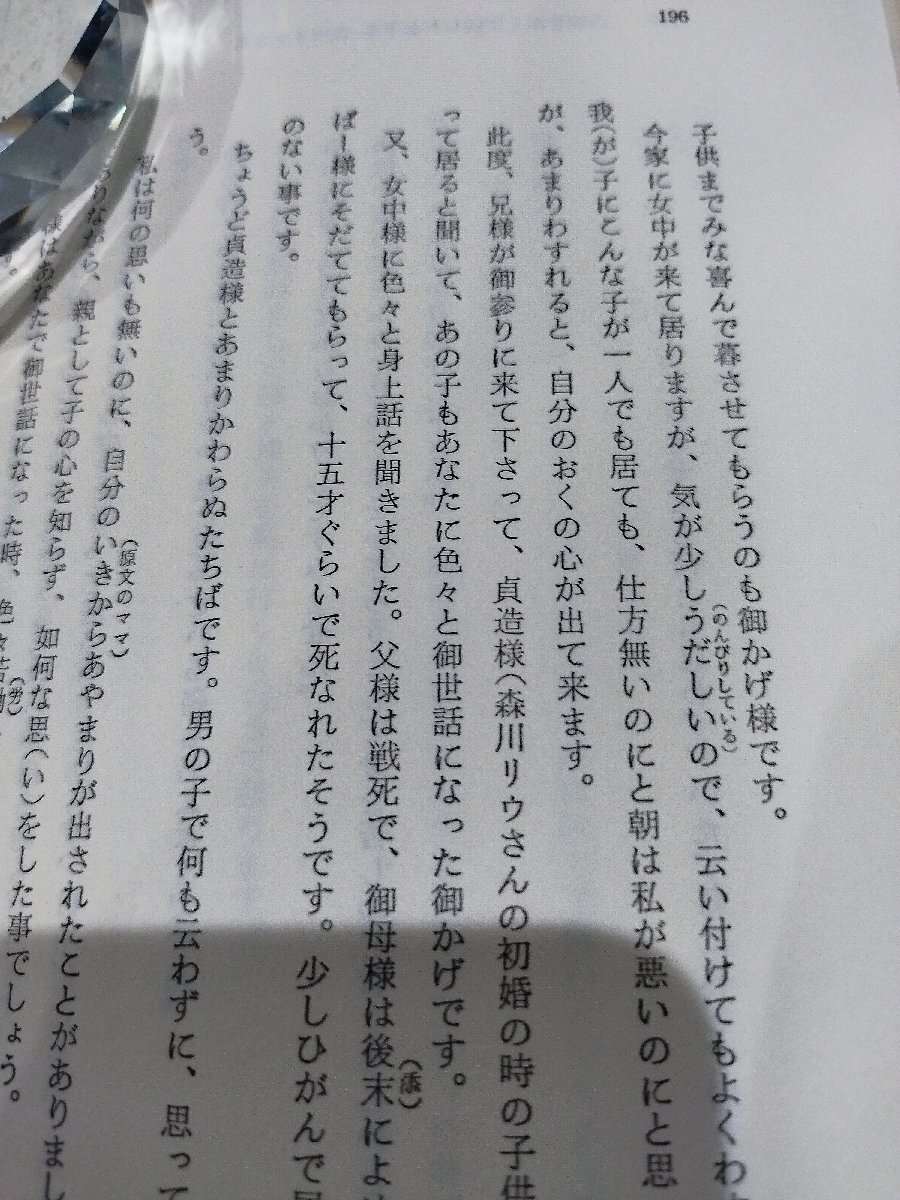 196
子供までみな喜んで暮させてもらうのも御かげ様です。
今家に女中が来て居りますが、気が少しうだしいので、云い付けてもよくわ
(のんびりしている)
我(が)子にこんな子が一人でも居ても、仕方無いのにと朝は私が悪いのにと思
が、あまりわすれると、自分のおくの心が出て来ます。
此度、兄様が御参りに来て下さって、貞造様(森川リゥさんの初婚の時の子供
って居ると聞いて、あの子もあなたに色々と御世話になった御かげです。
又、女中様に色々と身上話を聞きました。父様は戦死で、御母様は後末によ
ばー様にそだててもらって、十五才ぐらいで死なれたそうです。少しひがんで
のない事です。
ちょうど貞造様とあまりかわらぬたちばです。男の子で何も云わずに、思って
う。
私は何の思いも無いのに、自分のいきからあやまりが出されたことがありまし
(原文のママ)
りながら、親として子の心を知らず、如何な思(い)をした事でしょう。
様はあなたで御世話になった時、色々苦
す。